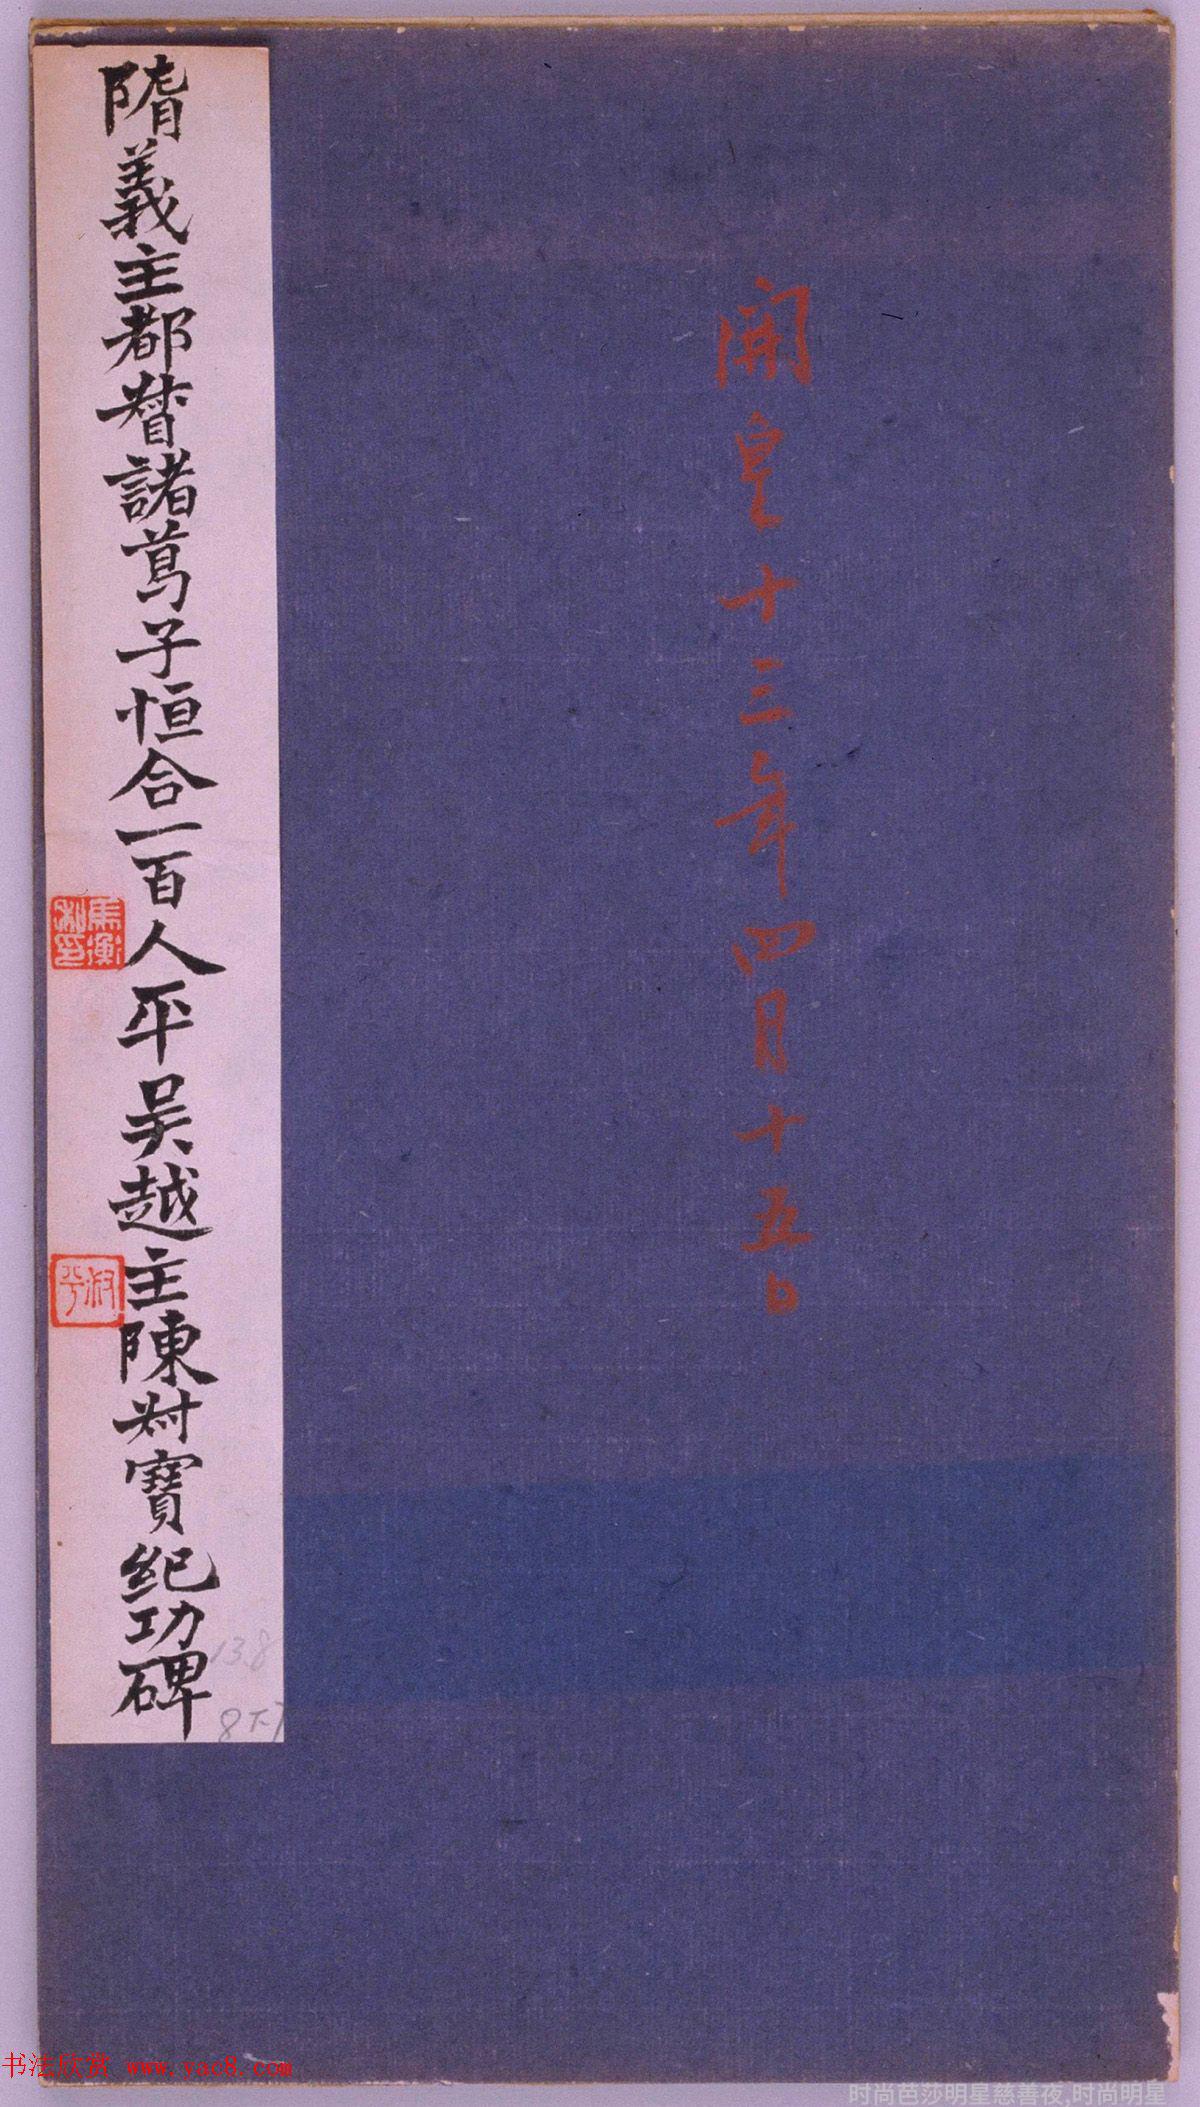 開皇十三年四月十五日
隋義主都督諸葛子恒合一百人平吳越主陳叔寶紀功碑
馬衡私印
叔平
138
8下-7
书法欣赏 www.yac8.com
时尚芭莎明星慈善夜,时尚明星